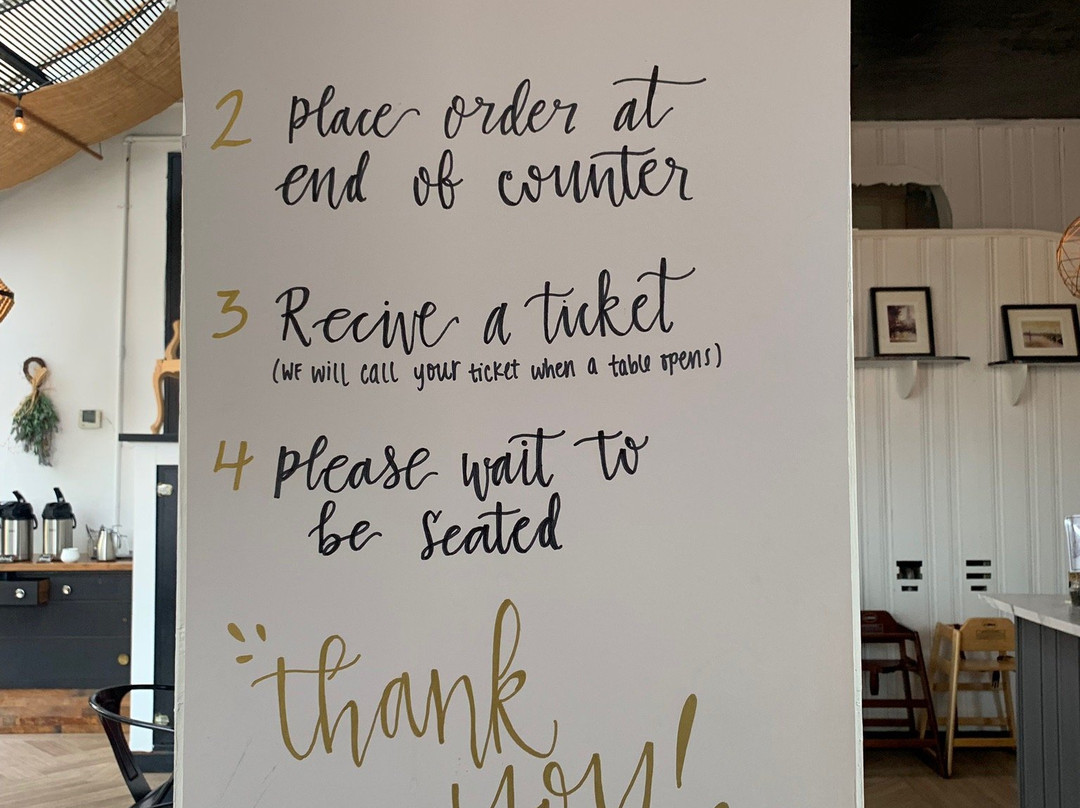 2 place order at
end of counter
3 Recive a ticket
(WE will call your ticket when a table opens)
4 please wait to
be seated
thank
you!